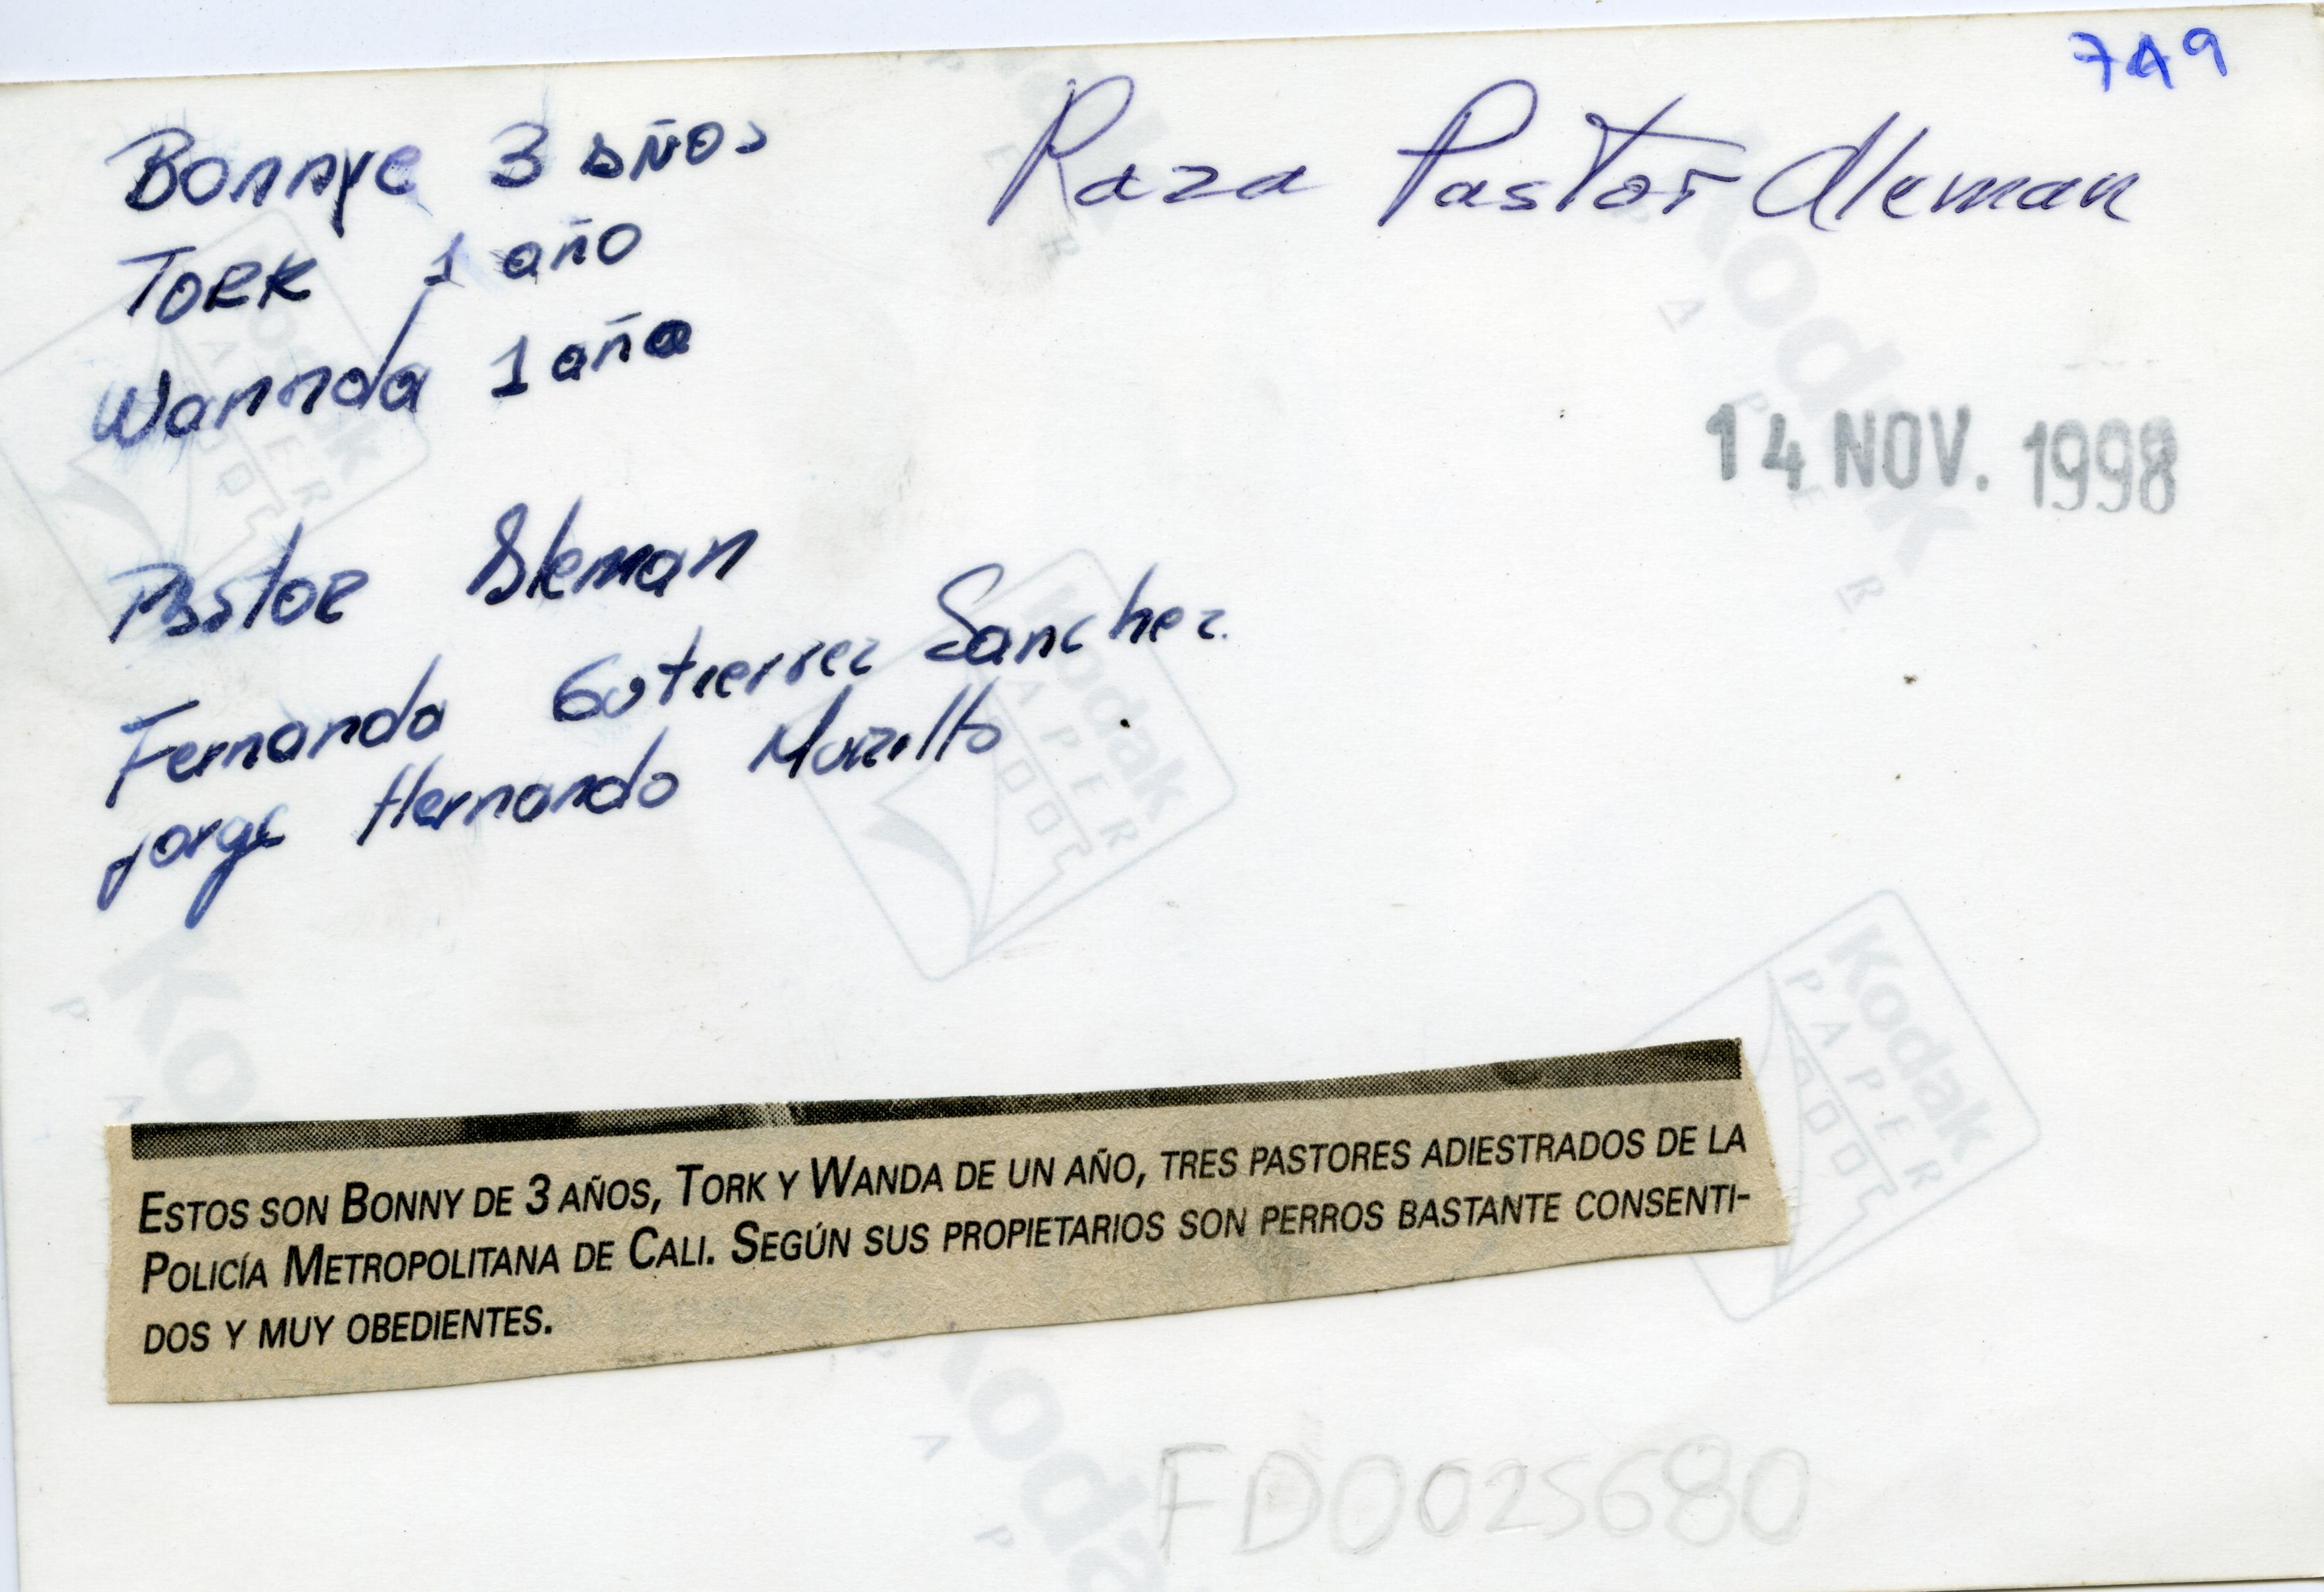 749
Raza Pastor Aleman
Bonnye 3 años
Tork 1 año
Wannda 1 año
14 NOV. 1998
Pastor Aleman
Fernanda Gutierrez Sanchez.
Jorge Hernando
ESTOS SON BONNY DE 3 AÑOS, TORK Y WANDA DE UN AÑO, TRES PASTORES ADIESTRADOS DE LA
POLICÍA METROPOLITANA DE CALI. SEGÚN SUS PROPIETARIOS SON PERROS BASTANTE CONSENTI-
DOS Y MUY OBEDIENTES.
FD0025680
Kodak
PAPER
Kodak
PAPER
Kodak
PAPER